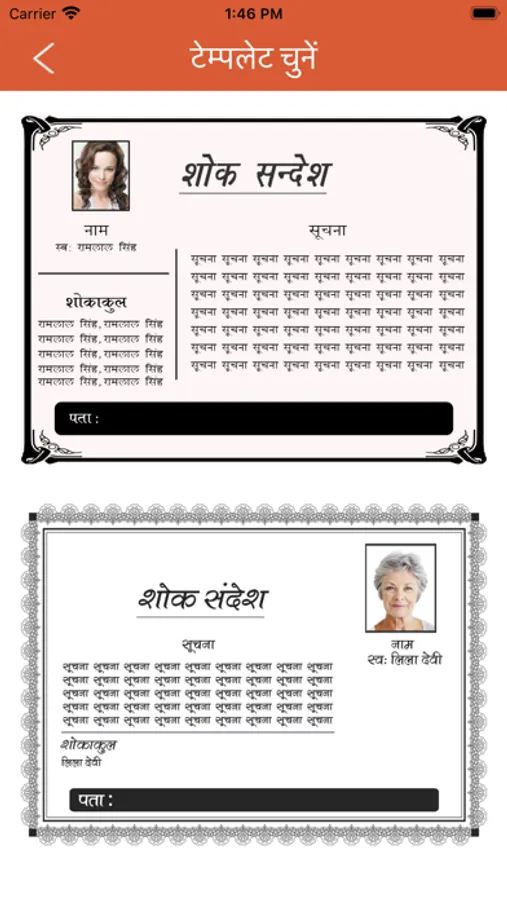 Carrier 1:46 PM
टेम्पलेट चुनें
शोक सन्देश
नाम
स्व: रामलाल सिंह
शोकाकुल
रामलाल सिंह,रामलाल सिंह
रामलाल सिंह,रामलाल सिंह
रामलाल सिंह,रामलाल सिंह
रामलाल सिंह,रामलाल सिंह
रामलाल सिंह,रामलाल सिंह
सूचना
सूचना सूचना सूचना सूचना सूचना सूचना सूचना सूचना सूचना
सूचना सूचना सूचना सूचना सूचना सूचना सूचना सूचना सूचना
सूचना सूचना सूचना सूचना सूचना सूचना सूचना सूचना सूचना
सूचना सूचना सूचना सूचना सूचना सूचना सूचना सूचना सूचना
सूचना सूचना सूचना सूचना सूचना सूचना सूचना सूचना सूचना
सूचना सूचना सूचना सूचना सूचना सूचना सूचना सूचना सूचना
सूचना सूचना सूचना सूचना सूचना सूचना सूचना सूचना सूचना
पता :
शोक संदेश
नाम
स्व: लिला देवी
सूचना
सूचना सूचना सूचना सूचना सूचना सूचना सूचना सूचना सूचना
सूचना सूचना सूचना सूचना सूचना सूचना सूचना सूचना सूचना
सूचना सूचना सूचना सूचना सूचना सूचना सूचना सूचना सूचना
सूचना सूचना सूचना सूचना सूचना सूचना सूचना सूचना सूचना
सूचना सूचना सूचना सूचना सूचना सूचना सूचना सूचना सूचना
शोकाकुल
लिला देवी
पता :